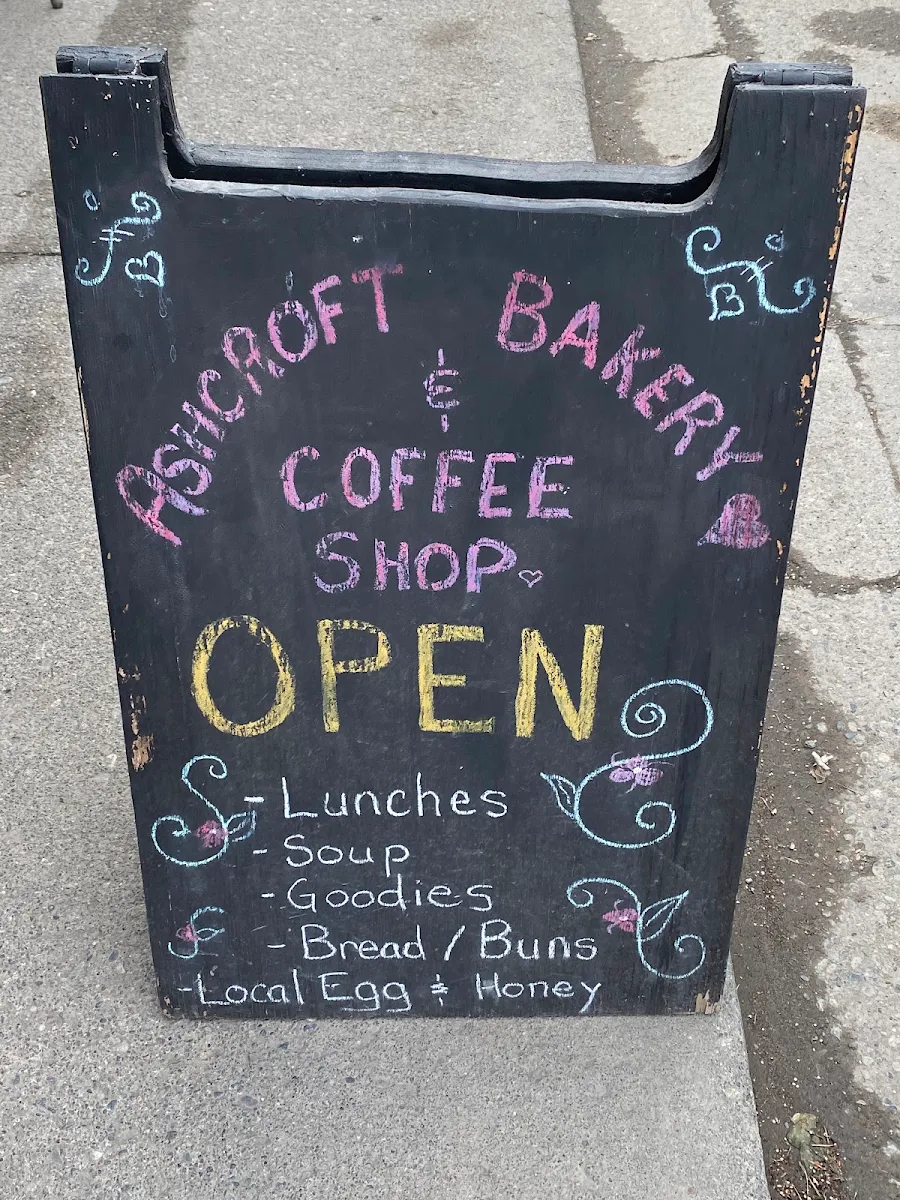 ASHCROFT BAKERY
&
COFFEE
SHOP
OPEN
- Lunches
- Soup
- Goodies
- Bread / Buns
- Local Egg & Honey